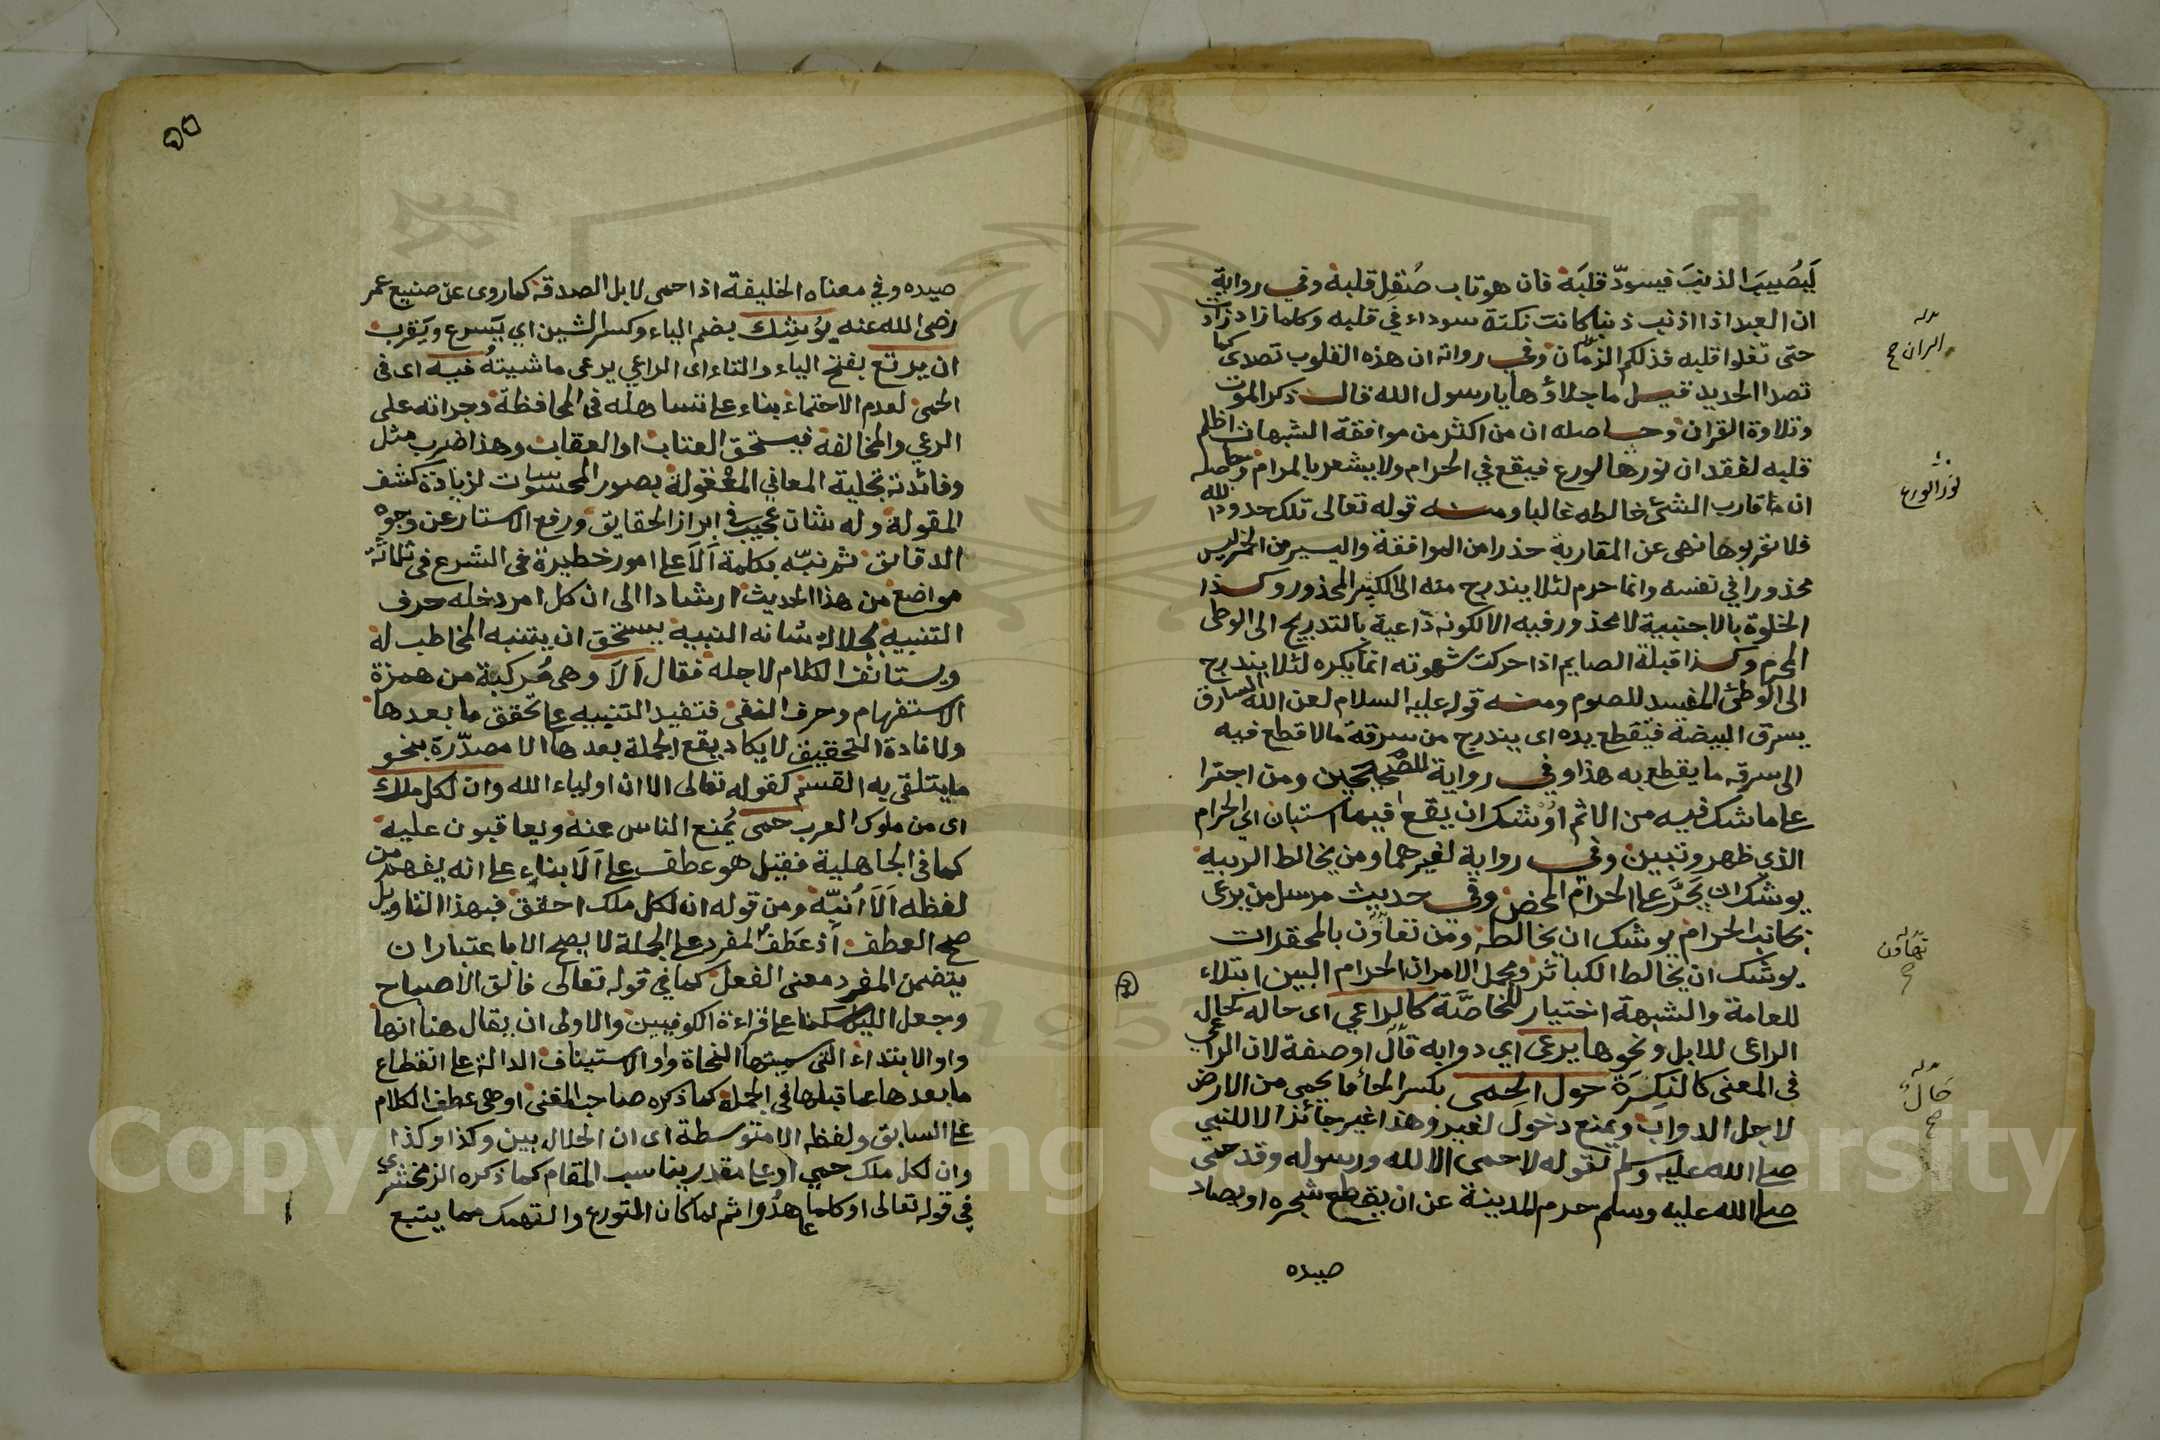 ليصيب الذنب فيسود قلبه فان هو تاب صقل قلبه وفي رواية
ان العبد اذا اذنب ذنبا كانت نكتة سوداء في قلبه وكلما زاد زادت
حتى تعلوا قلبه فذلكم الران وفي رواية ان هذه القلوب تصدى كما
تصدا الحديد قيل ما جلاؤها يا رسول الله قال ذكر الموت
وتلاوة القران وحاصله ان من اكثر من موافقة الشبهات اظلم
قلبه لفقدان نورها لورع فيقع في الحرام ولا يشعر بالمرام وحاصله
ان ما قارب الشئ خالطه غالبا ومنه قوله تعالى تلك حدود الله
فلا تقربوها نهى عن المقاربة حذرا من الموافقة واليسير من الخمر ليس
محذورا في نفسه وانما حرم لئلا يندرج منه الى الكثير المحذور وكذا
الخلوة بالاجنبية لا محذور فيه الا لكونه داعية بالتدريج الى الوطى
المحرم وكذا قبلة الصايم اذا حركت شهوته انما يكره لئلا يندرج
الى الوطئ المفسد للصوم ومنه قوله عليه السلام لعن الله السارق
يسرق البيضة فيقطع يده اى يندرج من سرقة مالا قطع فيه
الى سرقة ما يقطع به هذا وفي رواية للصحيحين ومن اجترا
على ما شك فيه من الاثم اوشك ان يقع فيما استبان اي الحرام
الذي ظهر وتبين وفي رواية لغيرهما ومن يخالط الريبة
يوشك ان يجر على الحرام المحض وفي حديث مرسل من يرعى
بجانب الحرام يوشك ان يخالطه ومن تعاون بالمحقرات
يوشك ان يخالط الكبائر ومجمل الامر ان الحرام البين ابتلاء
للعامة والشبهة اختيار للخاصة كالراعي اى حاله كحال
الراعى للابل ونحوها يرعى اي دوابه قال او صفة لان الراعي
في المعنى كالنكرة حول الحمى بكسر الحاء ما يحمى من الارض
لاجل الدواب ويمنع دخول لغير وهذا غير جائز الا للنبي
صلى الله عليه وسلم لقوله لا حمى الا لله ورسوله وقد حمى
صلى الله عليه وسلم حرم المدينة عن ان يقطع شجره او يصاد
صيده
بدله
الران
صح
نور الورع
بدله
تهاون
ح
بدله
حال
ح
٥٥
صيده وفي معناه الخليفة اذا حمى لابل الصدقة كما روى عن صنيع عمر
رضى الله عنه يوشك بضم الياء وكسر الشين اي يسرع ويقرب
ان يرتع بفتح الياء والتاء اى الراعي يرعى ماشيته فيه اى في
الحمى لعدم الاحتماء بناء على تساهله في المحافظة وجراته على
الرعي والمخالفة فيستحق العتاب او العقاب وهذا ضرب مثل
وفائدته تجلية المعاني المعقولة بصور المحسوسات لزيادة كشف
المقولة وله شان عجيب في ابراز الحقايق ورفع الاستار عن وجوه
الدقايق ثم نبه بكلمة الا على امور خطيرة في الشرع في ثلاثة
مواضع من هذا الحديث ارشادا الى ان كل امر دخله حرف
التنبيه لجلالة شانه النبيه يستحق ان يتنبه المخاطب له
ويستانف الكلام لاجله فقال الا وهى مركبة من همزة
الاستفهام وحرف النفى فتفيد التنبيه على تحقق ما بعدها
ولافادة التحقيق لا يكاد يقع الجملة بعدها الا مصدرة بنحو
ما يتلقى به القسم كقوله تعالى الا ان اولياء الله وان لكل ملك
اى من ملوك العرب حمى يمنع الناس عنه ويعاقبون عليه
كما في الجاهلية فقيل هو عطف على الا بناء على انه يفهم من
لفظه الا انبه ومن قوله ان لكل ملك احقق فبهذا التاويل
صح العطف اذ عطف المفرد على الجملة لا يصح الا باعتبار ان
يتضمن المفرد معنى الفعل كما في قوله تعالى فالق الاصباح
وجعل الليل سكنا على قراءة الكوفيين والاولى ان يقال هنا انها
واو الابتداء التي سميتها النحاة واو الاستيناف الدالة على انقطاع
ما بعدها عما قبلها في الجملة كما ذكره صاحب المغنى او هى عطف الكلام
على السابق ولفظه الا متوسطة اى ان الحلال بين وكذا وكذا
وان لكل ملك حمي او على مقدر يناسب المقام كما ذكره الزمخشري
في قوله تعالى او كلما عاهدوا ثم لما كان التورع والتهمك مما يتبع
Copyright © King Saud University
1957